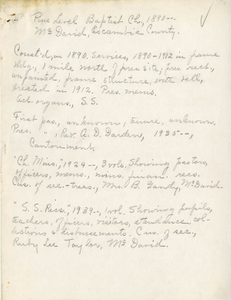 Pine Level Baptist Ch., 1890--.
McDavid, Escambia County.
Const'd, in 1890. Services, 1890-1912 in frame
bldg., 1 mile north of pres. site; free rect.,
unpainted, frame structure, with bell,
erected in 1912. Pres. mems.
Set organs, S.S.
First pas., unknown, tenure, unknown.
Pres. " , Rev. A. D. Dardens, 1935--,
Cantonment.
"Ch. Mins.," 1924--, 3 vols. Showing pastors,
officers, mems., mins., finan'l. recs.
Cus. of sec.-treas., Mrs. B. Gandy, McDavid.
"S. S. Recs.," 1934--, 1 vol. Showing pupils,
teachers, officers, visitors, attendance, col-
lections & disbursements. Cus. of sec.,
Ruby Lee Taylor, McDavid.